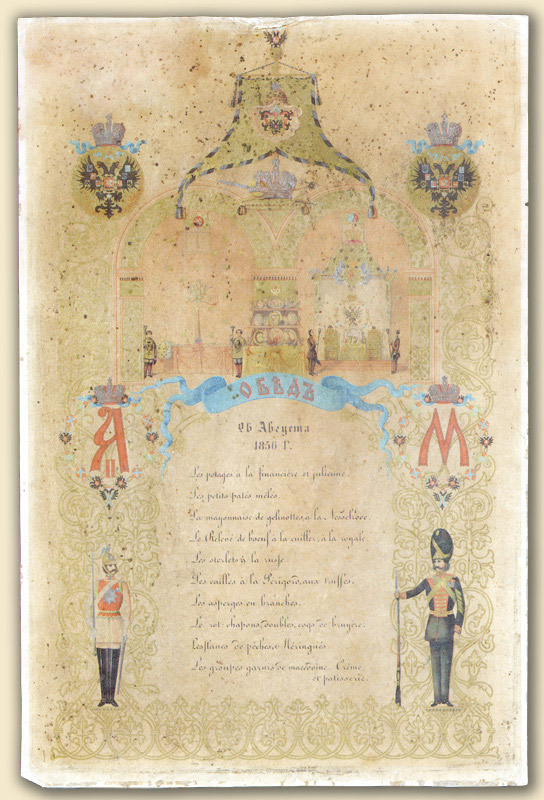 ОБѢДЪ
А
II
М
26 Августа
1856 Г.
Les potages à la financière et julienne.
Les petits patés mêlés.
La mayonnaise de gelinottes, à la Nesselrode.
Le Relevé de boeuf à la cuiller, à la royale.
Les sterlets à la russe
Les cailles à la Perigord, aux truffes.
Les asperges en branches.
Le rot: chapons, doubles, coqs de bruyère.
Les flancs de pêches, & Meringués
Les groupes garnis de macedoine Crème
et patisserie.